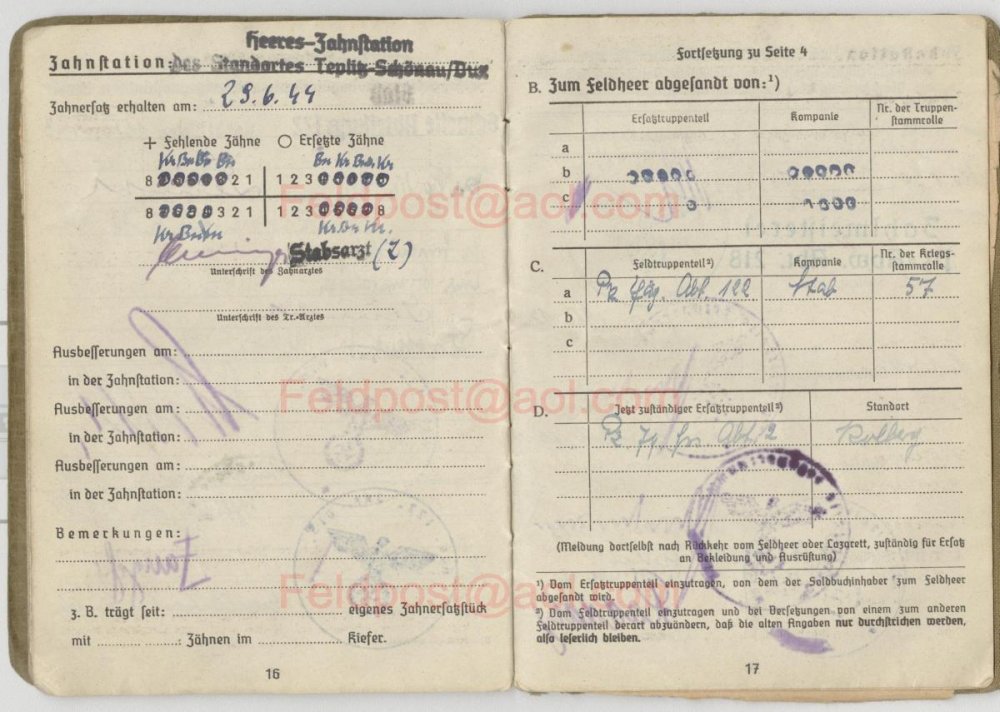 Heeres-Zahnstation
Zahnstation: des Standortes Teplitz-Schönau/Dux
Zahnersatz erhalten am: 29.6.44
+ Fehlende Zähne O Ersetzte Zähne
8 2 1 1 2 3
8 3 2 1 1 2 3 8
Stabsarzt (Z)
Unterschrift des Zahnarztes
Unterschrift des Tr.-Arztes
Ausbesserungen am:
in der Zahnstation:
Ausbesserungen am:
in der Zahnstation:
Ausbesserungen am:
in der Zahnstation:
Bemerkungen:
z. B. trägt seit: eigenes Zahnersatzstück
mit Zähnen im Kiefer.
16
Fortsetzung zu Seite 4
B. Zum Feldheer abgesandt von:¹)
Ersatztruppenteil Kompanie Nr. der Truppenstammrolle
a
b
c
C. Feldtruppenteil²) Kompanie Nr. der Kriegsstammrolle
a Pz Jäg. Abt. 122 Stab 57
b
c
D. Jetzt zuständiger Ersatztruppenteil²) Standort
Pz Jg. Ers Abt 2 Kolberg
(Meldung dortselbst nach Rückkehr vom Feldheer oder Lazarett, zuständig für Ersatz
an Bekleidung und Ausrüstung)
¹) Vom Ersatztruppenteil einzutragen, von dem der Soldbuchinhaber zum Feldheer
abgesandt wird.
²) Vom Feldtruppenteil einzutragen und bei Versetzungen von einem zum anderen
Feldtruppenteil derart abzuändern, daß die alten Angaben nur durchstrichen werden,
also leserlich bleiben.
17
Feldpost@aol.com
Feldpost@aol.com
Feldpost@aol.com